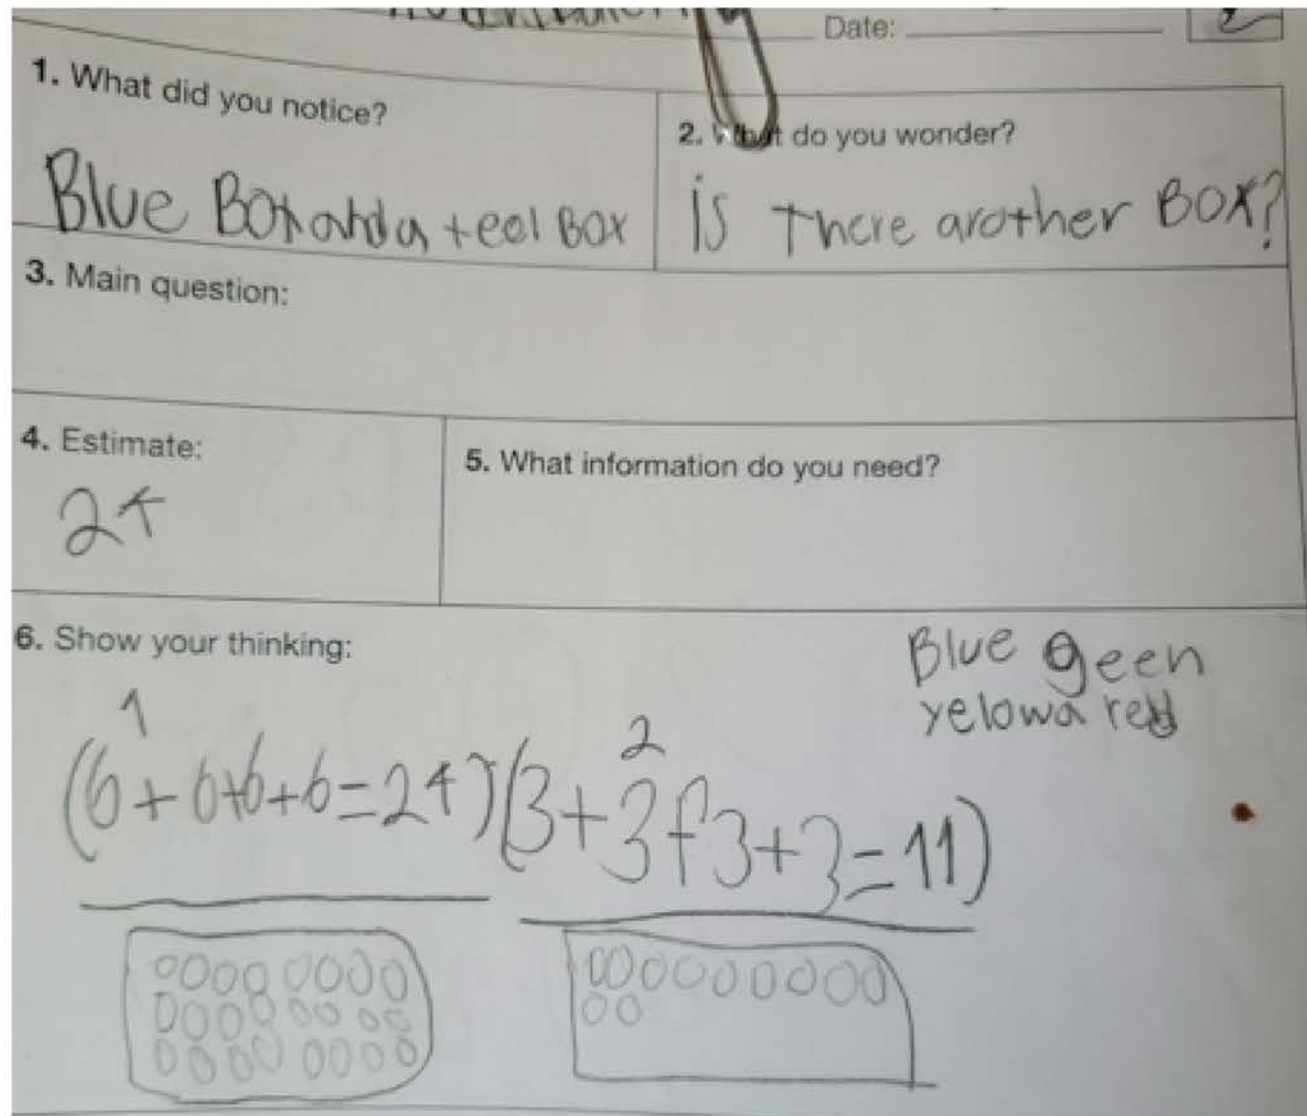 Date:
1. What did you notice?
Blue Box and a teel Box
2. What do you wonder?
is There another Box?
3. Main question:
4. Estimate:
24
5. What information do you need?
6. Show your thinking:
Blue geen
yelowa red
1
2
(6+6+6+6=24)(3+3+3+3=11)